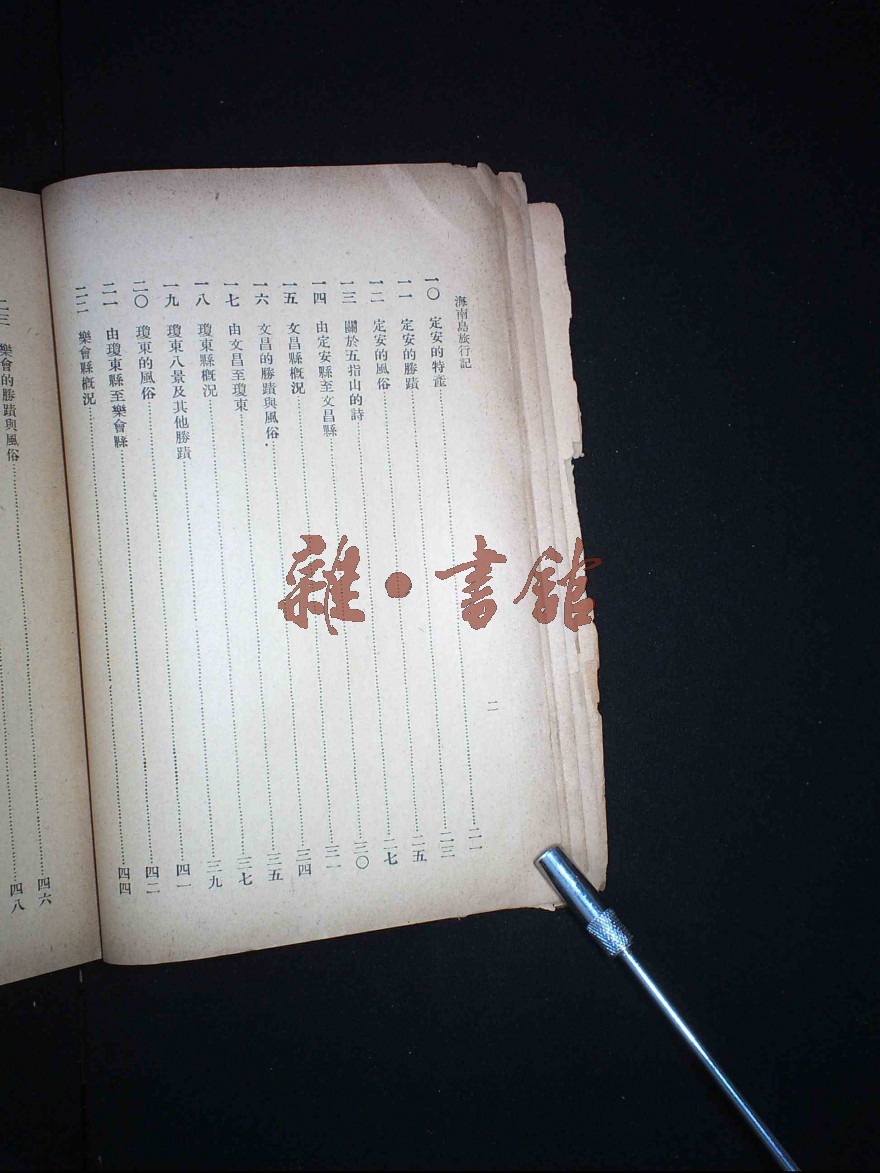 海南島旅行記
二
一〇 定安的特產……二一
一一 定安的勝蹟……二三
一二 定安的風俗……二五
一三 關於五指山的詩……二七
一四 由定安縣至文昌縣……三〇
一五 文昌縣概況……三一
一六 文昌的勝蹟與風俗……三四
一七 由文昌至瓊東……三五
一八 瓊東縣概況……三七
一九 瓊東八景及其他勝蹟……三九
二〇 瓊東的風俗……四一
二一 由瓊東縣至樂會縣……四二
二二 樂會縣概況……四四
二三 樂會的勝蹟與風俗……四六
四八
雜·書館